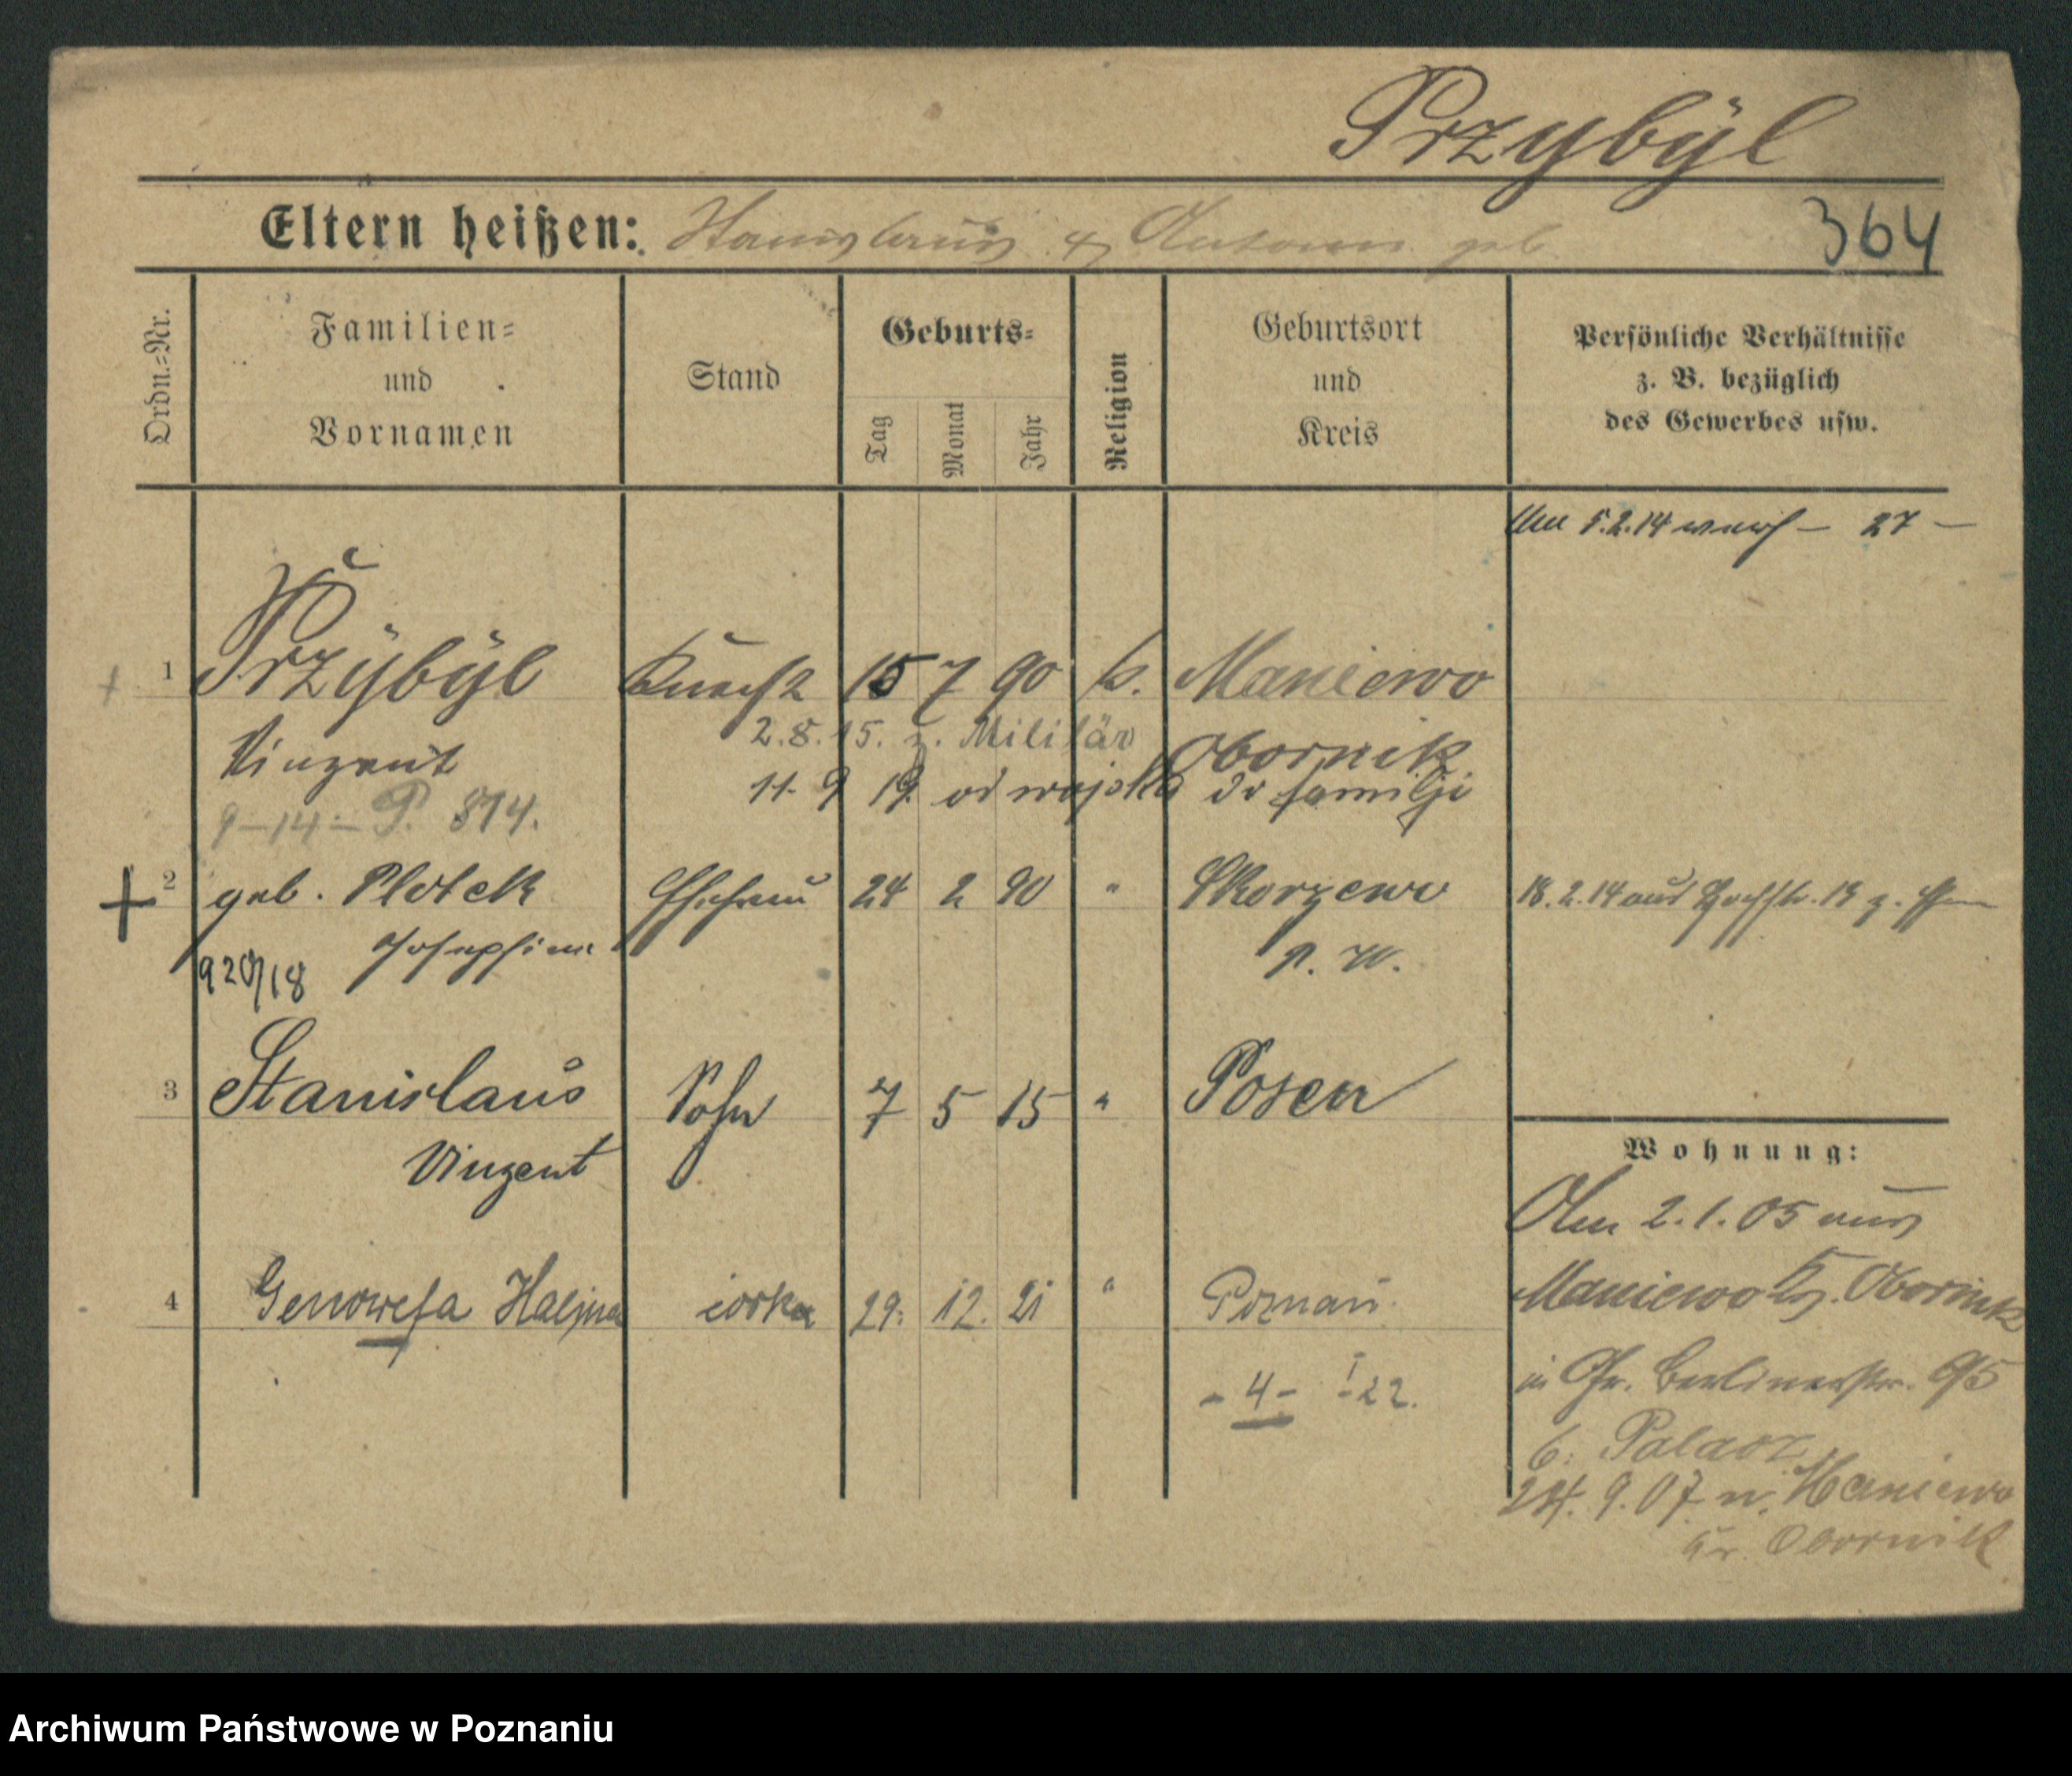 Przybÿl
Eltern heißen: Stanislaus & Anton geb
364
Ordn.-Nr.
Familien-
und
Vornamen
Stand
Geburts-
Tag
Monat
Jahr
Religion
Geburtsort
und
Kreis
Persönliche Verhältnisse
z. B. bezüglich
des Gewerbes usw.
Am 5.2.14 – 27 –
1 Przÿbÿl Knecht 15 7 90 k. Maniewo
2.8.15. z. Militär
Vinzent Obornik
11. 9 19. od wojska do familji
9–14– P. 814.
2 geb. Plotek Ehefrau 24 2 90 " Skorzewo 18.2.14 aus 18 z.
Josephine P. W.
920/18
3 Stanislaus Sohn 7 5 15 " Posen
Vinzent
Wohnung:
Am 2.1.05 aus
4 Genowefa Halina córka 29. 12. 21 " Poznań Maniewo Kr. Obornik
in Gr. Berlinerstr. 95
- 4 - I 22.
b. Palacz
24. 9. 07. n. Maniewo
Kr. Obornik
Archiwum Państwowe w Poznaniu